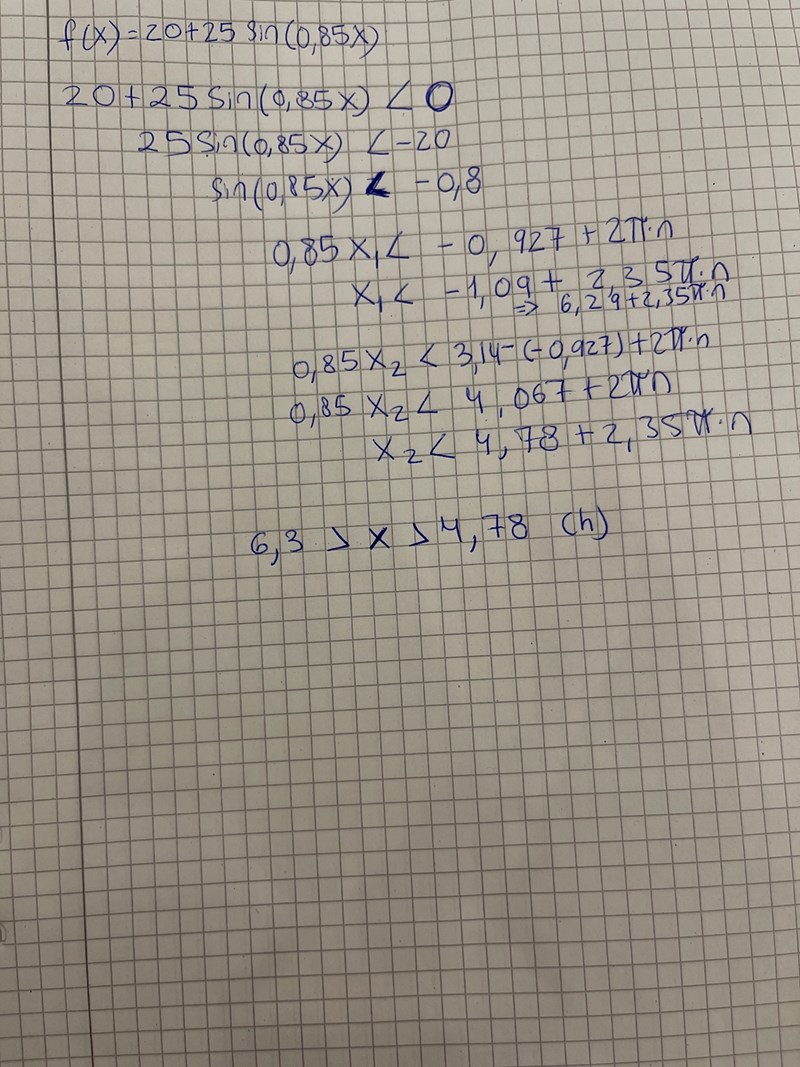 f(x)=20+25 sin(0,85x)
20+25 sin(0,85x) < 0
25 sin(0,85x) < -20
sin(0,85x) < -0,8
0,85x₁ < -0,927+2π·n
x₁ < -1,09+ 2,35π·n
⇒ 6,29+2,35π·n
0,85x₂ < 3,14-(-0,927)+2π·n
0,85x₂ < 4,067+2πn
x₂ < 4,78+2,35π·n
6,3 > x > 4,78 (h)